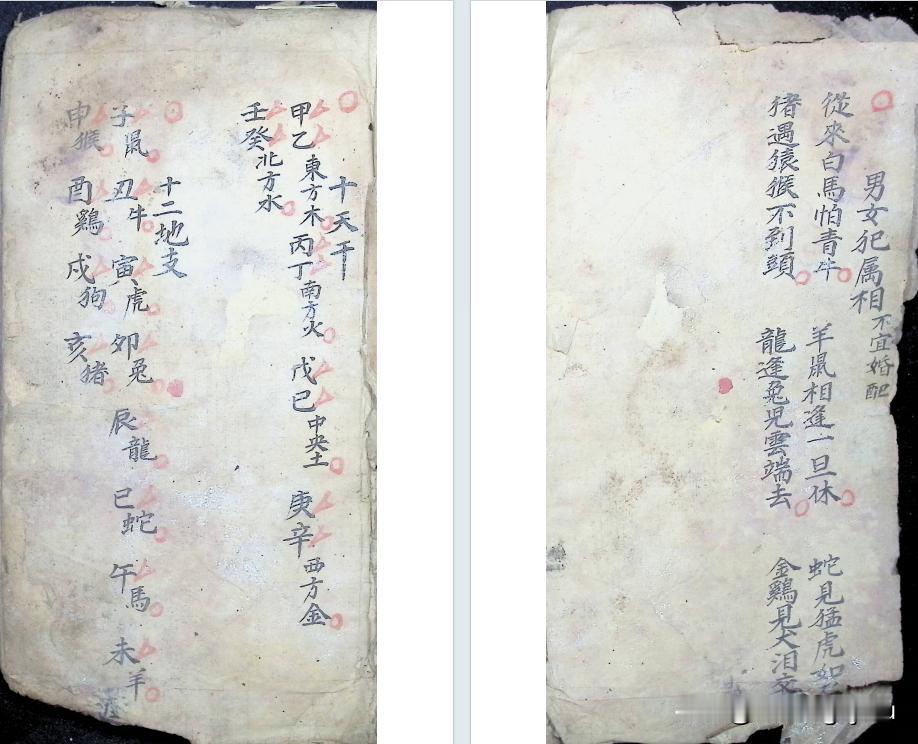 男女犯属相不宜婚配
從來白馬怕青牛 羊鼠相逢一旦休 蛇見猛虎
猪遇猿猴不到頭 龍逢兔児雲端去 金鷄見犬泪交
十天干
甲乙東方木 丙丁南方火 戊己中央土 庚辛西方金
壬癸北方水
十二地支
子鼠 丑牛 寅虎 卯兔 辰龍 巳蛇 午馬 未羊
申猴 酉鷄 戌狗 亥猪